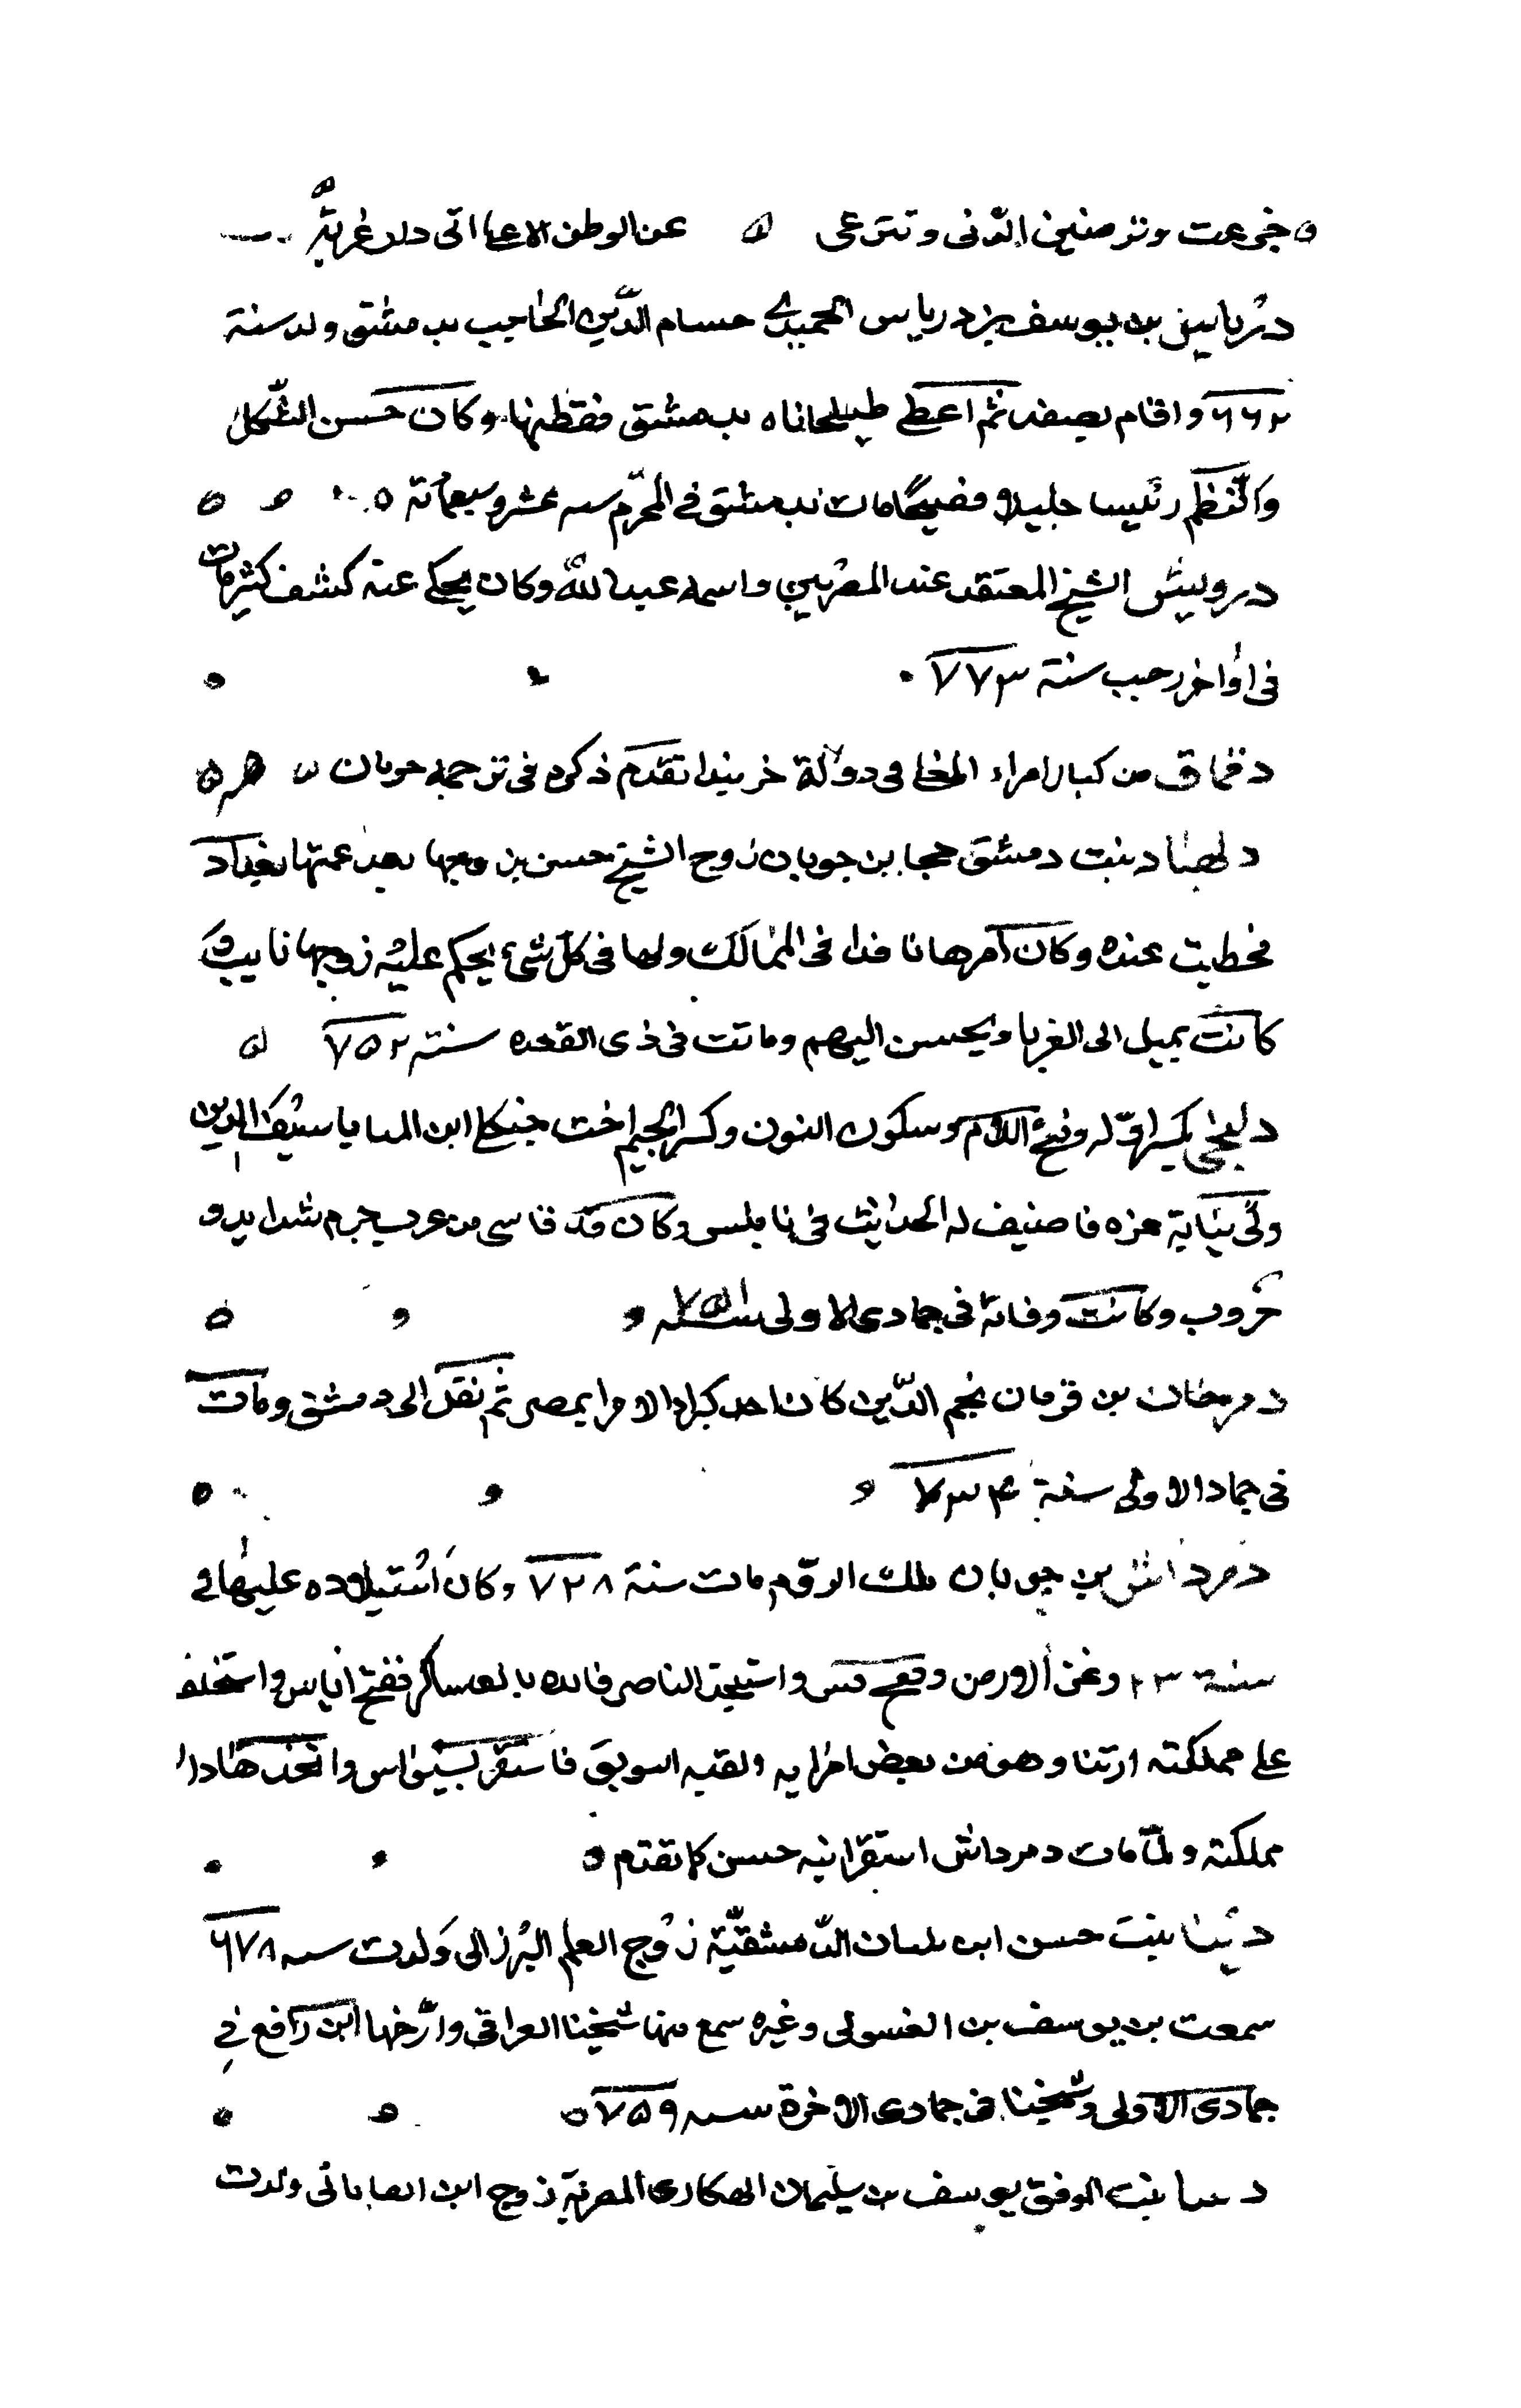 عن الوطن الا على اتى دار غربة
درباس بن يوسف بن درباس الحميدى حسام الدين الحاجب بدمشق ولد سنة
٦٦٢ واقام بصفد ثم اعطى طبلخاناه بدمشق فقطنها وكان حسن الشكل
والنظم رئيسا جليلا فصيحا مات بدمشق فى المحرم سنه عشر وسبعمائة
درويش الشيخ المعتقد عند المصريين واسمه عبد الله وكان يحكى عنه كشف كثير مات
فى اواخر رجب سنة ٧٧٣
دقماق من كبار امراء المغل فى دولة خربندا تقدم ذكره فى ترجمة جوبان
دلشاد بنت دمشق خجا بن جوبان زوج الشيخ حسن بن بعد عمتها بغداد
فحظيت عنده وكان امرها نافذا فى الممالك ولها فى كل شىء يحكم عليه زوجها نايب
كانت يميل الى الغربا ويحسن اليهم وماتت فى ذى القعده سنة ٧٥٢
دلنجى بكسر اوله وفتح اللام وسكون النون وكسر الجيم اخت جنكلى ابن البابا سيف الدين
ولى نيابة غزه فاضيف له الحديث فى نابلس وكان قد قاسى من عرب جرم شدايد و
حروب وكانت وفاته فى جمادى الاولى سنه ٧٥١
دمرخان بن قرمان نجم الدين كان احد كبار الامرا بمصر ثم نقل الى دمشق ومات
فى جمادا الاولى سنة ٧٣٤
دمرداش بن جوبان ملك الروم مات سنة ٧٢٨ وكان استيلاده عليها فى
سنة ٢٣ وغزا الارمن وفتح سيس واستنجد الناصر فامده بالعساكر ففتح اياس واستخلف
على مملكته ارتنا وهو من بعض امرايه ولقبه السويق فاستقر بسيواس واتخذها دار
مملكته ولما مات دمرداش استقر ابنه حسن كما تقدم
دنيا بنت حسن ابن بلبان الدمشقية زوج العلم البرزالى ولدت سنه ٦٧٨
سمعت بن يوسف بن الغسولى وغيره سمع منها شيخنا العراقى وارخها ابن رافع فى
جمادى الاولى وشيخنا فى جمادى الاخرة سنه ٧٥٩
دنيا بنت الموفق يوسف بن سليمان الهكارى المصرية زوج ابن ولدت